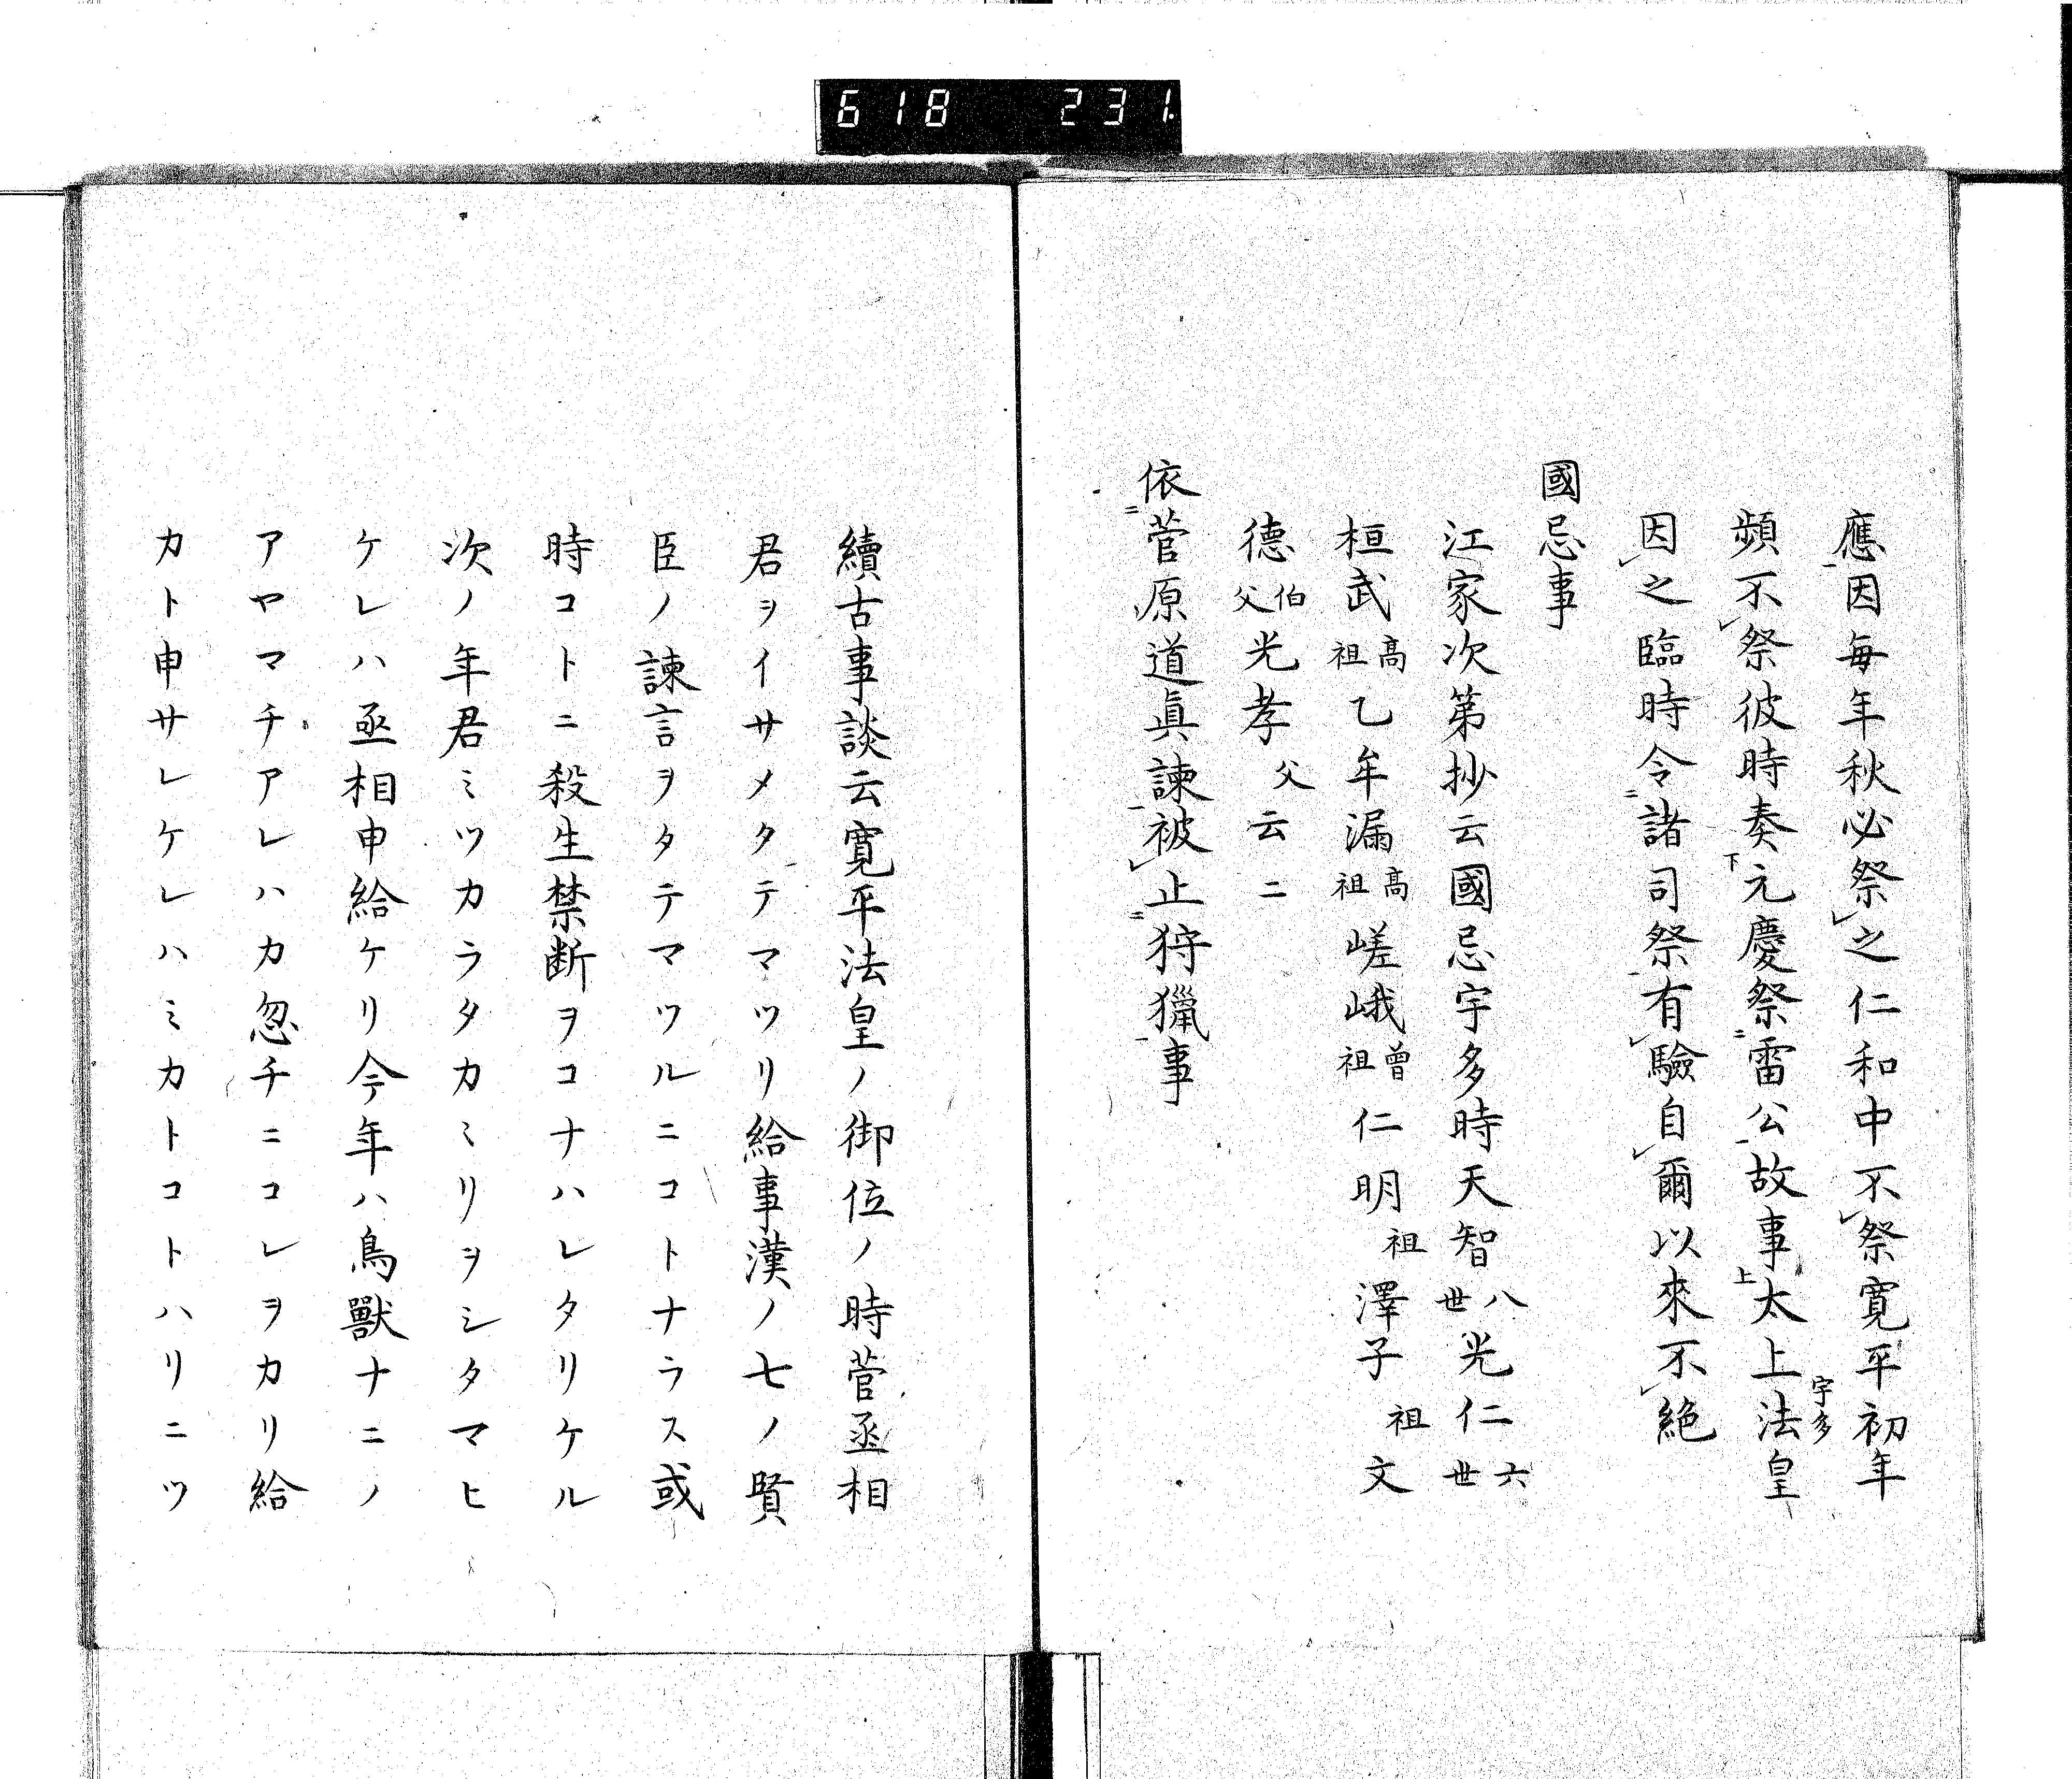 618 231
應因每年秋必祭之仁和中不祭寛平初年
頻不祭彼時奏元慶祭雷公故事太上法皇宇多
因之臨時令諸司祭有驗自爾以來不絶
國忌事
江家次第抄云國忌宇多時天智八世光仁六世
桓武高祖乙牟漏高祖嵯峨曾祖仁明祖澤子祖文
德伯父光孝父云ニ
依菅原道眞諫被止狩獵事
續古事談云寛平法皇ノ御位ノ時菅丞相
君ヲイサメタテマツリ給事漢ノ七ノ賢
臣ノ諫言ヲタテマツルニコトナラス或
時コトニ殺生禁断ヲコナハレタリケル
次ノ年君ミツカラタカミリヲシタマヒ
ケレハ丞相申給ケリ今年ハ鳥獸ナニノ
アヤマチアレハカ忽チニコレヲカリ給
カト申サレケレハミカトコトハリニツ